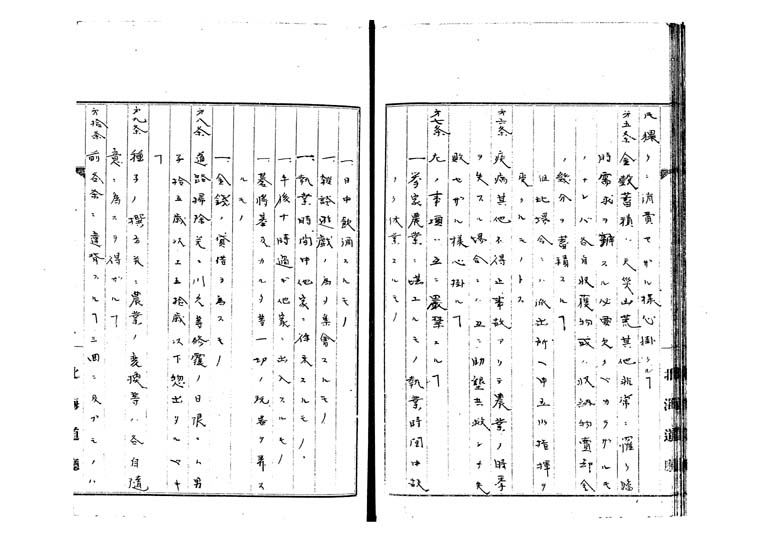 ニ消費セザル様心掛クル
第五条 金穀蓄積ハ天災凶荒其他非常ニ罹リ臨
時需求ヲ辨スル必要欠クベカラザルモ
ノナレバ各自収獲物或ハ収納物賣却金
ノ幾分ヲ蓄積スルヿ
但此場合ニハ派出所ヘ申立指揮ヲ
受クルモノトス
第六条 疾病其他不得止事故アリテ農業ノ時季
ヲ失スル場合ニハ互ニ助
敗セザル様心掛ルヿ
第七条 左ノ事項ハ互ニ嚴禁スルヿ
一 挙家農業ニ堪エルモノ執業時間中故
ナク休業スルモノ
一 日中飲酒スルモノ
一 雑談遊戯ノ為メ集會スルモノ
一 執業時間中他家ニ徘徊スルモノ
一 午後十時過ギ他家ニ出入スルモノ
一 碁将棊スカルタ等一切ノ玩器ヲ弄ス
ルモノ
一 金錢ノ貸借ヲ為スモノ
第八条 道路掃除并ニ川欠等修覆ノ日限ニハ男
子拾五歳以上五拾歳以下惣出タルベキ
ヿ
第九条 種子ノ撰方并ニ農業ノ等ハ各自随
意ニ為スヲ得ザルヿ
第拾条 前各条ニ違背スルヿ三回ニ及ブモノハ
北海道廳
北海道廳